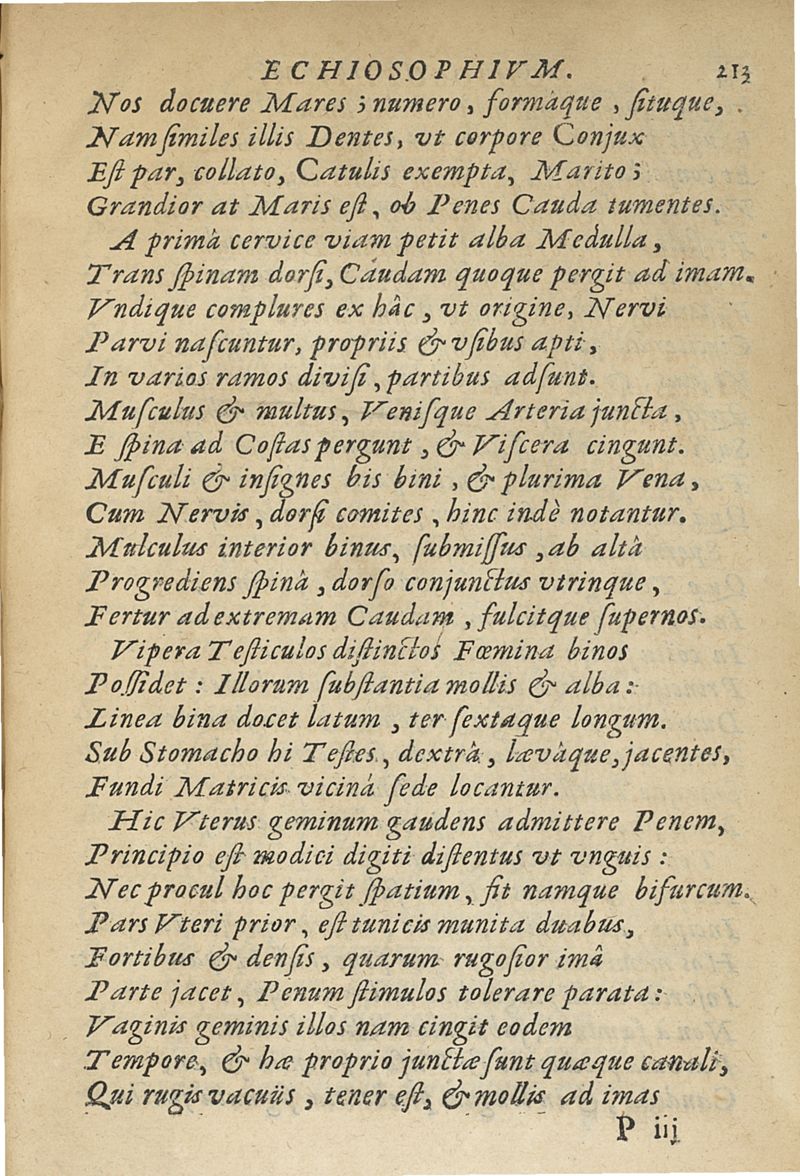 ECHIOSOPHIVM. 213
Nos docuere Mares; numero, formàque, ſituque,
Nam ſimiles illis Dentes, vt corpore Conjux
Eſt par, collato, Catulis exempta, Marito;
Grandior at Maris eſt, ob Penes Cauda tumentes.
A primâ cervice viam petit alba Medulla,
Trans ſpinam dorſi, Caudam quoque pergit ad imam.
Vndique complures ex hâc, vt origine, Nervi
Parvi naſcuntur, propriis & vſibus apti,
In varios ramos diviſi, partibus adſunt.
Muſculus & multus, Veniſque Arteria juncta,
E ſpina ad Coſtas pergunt, & Viſcera cingunt.
Muſculi & inſignes bis bini, & plurima Vena,
Cum Nervis, dorſi comites, hinc indè notantur.
Mulculus interior binus, ſubmiſſus, ab altâ
Progrediens ſpinâ, dorſo conjunctus vtrinque,
Fertur ad extremam Caudam, fulcitque ſupernos.
Vipera Teſticulos diſtinctos Fœmina binos
Poſſidet: Illorum ſubſtantia mollis & alba:
Linea bina docet latum, ter ſextaque longum.
Sub Stomacho hi Teſtes, dextrâ, lævàque, jacentes,
Fundi Matricis vicinâ ſede locantur.
Hic Vterus geminum gaudens admittere Penem,
Principio eſt modici digiti diſtentus vt vnguis:
Nec procul hoc pergit ſpatium, fit namque bifurcum.
Pars Vteri prior, eſt tunicis munita duabus,
Fortibus & denſis, quarum rugoſior imâ
Parte jacet, Penum ſtimulos tolerare parata:
Vaginis geminis illos nam cingit eodem
Tempore, & hæ proprio junctæ ſunt quæque canali,
Qui rugis vacuüs, tener eſt, & mollis ad imas
P iij